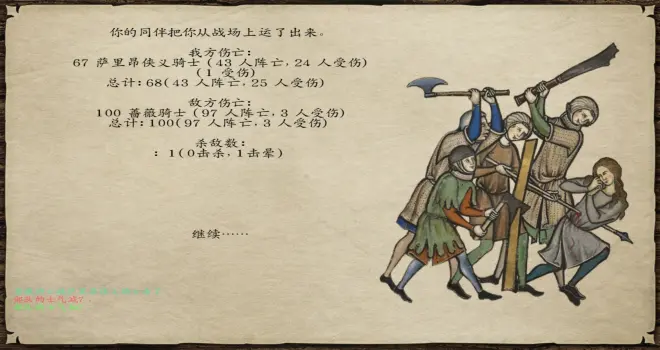 你的同伴把你从战场上运了出来。
我方伤亡：
67 萨里昂侠义骑士（43 人阵亡，24 人受伤）
（1 受伤）
总计：68（43 人阵亡，25 人受伤）
敌方伤亡：
100 蔷薇骑士（97 人阵亡，3 人受伤）
总计：100（97 人阵亡，3 人受伤）
杀敌数：
：1（0击杀，1击晕）
继续……
的士气减7